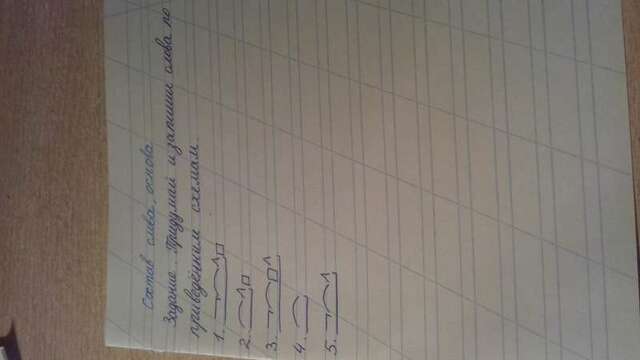 Состав слова, основа.
Задание: Придумай и запиши слова по
приведённым схемам.
1.
2.
3.
4.
5.